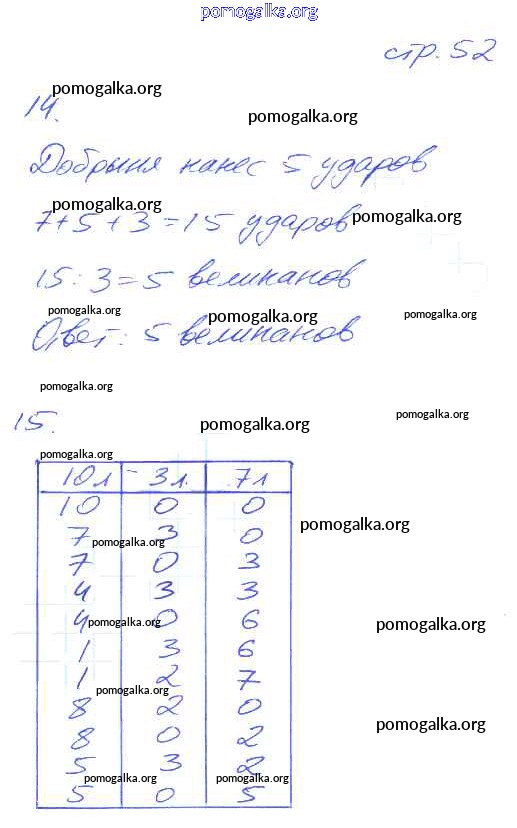 pomogalka.org
стр. 52
pomogalka.org
14.
pomogalka.org
Добрыня нанес 5 ударов
7+5+3=15 ударов
pomogalka.org pomogalka.org
15:3=5 великанов
pomogalka.org pomogalka.org pomogalka.org
Ответ: 5 великанов
pomogalka.org
pomogalka.org
15.
pomogalka.org
pomogalka.org
10л 3л 7л
10 0 0
pomogalka.org
7 3 0
pomogalka.org
7 0 3
4 3 3
4 0 6
pomogalka.org pomogalka.org
1 3 6
1 2 7
pomogalka.org
8 2 0
pomogalka.org
8 0 2
5 3 2
pomogalka.org pomogalka.org
5 0 5